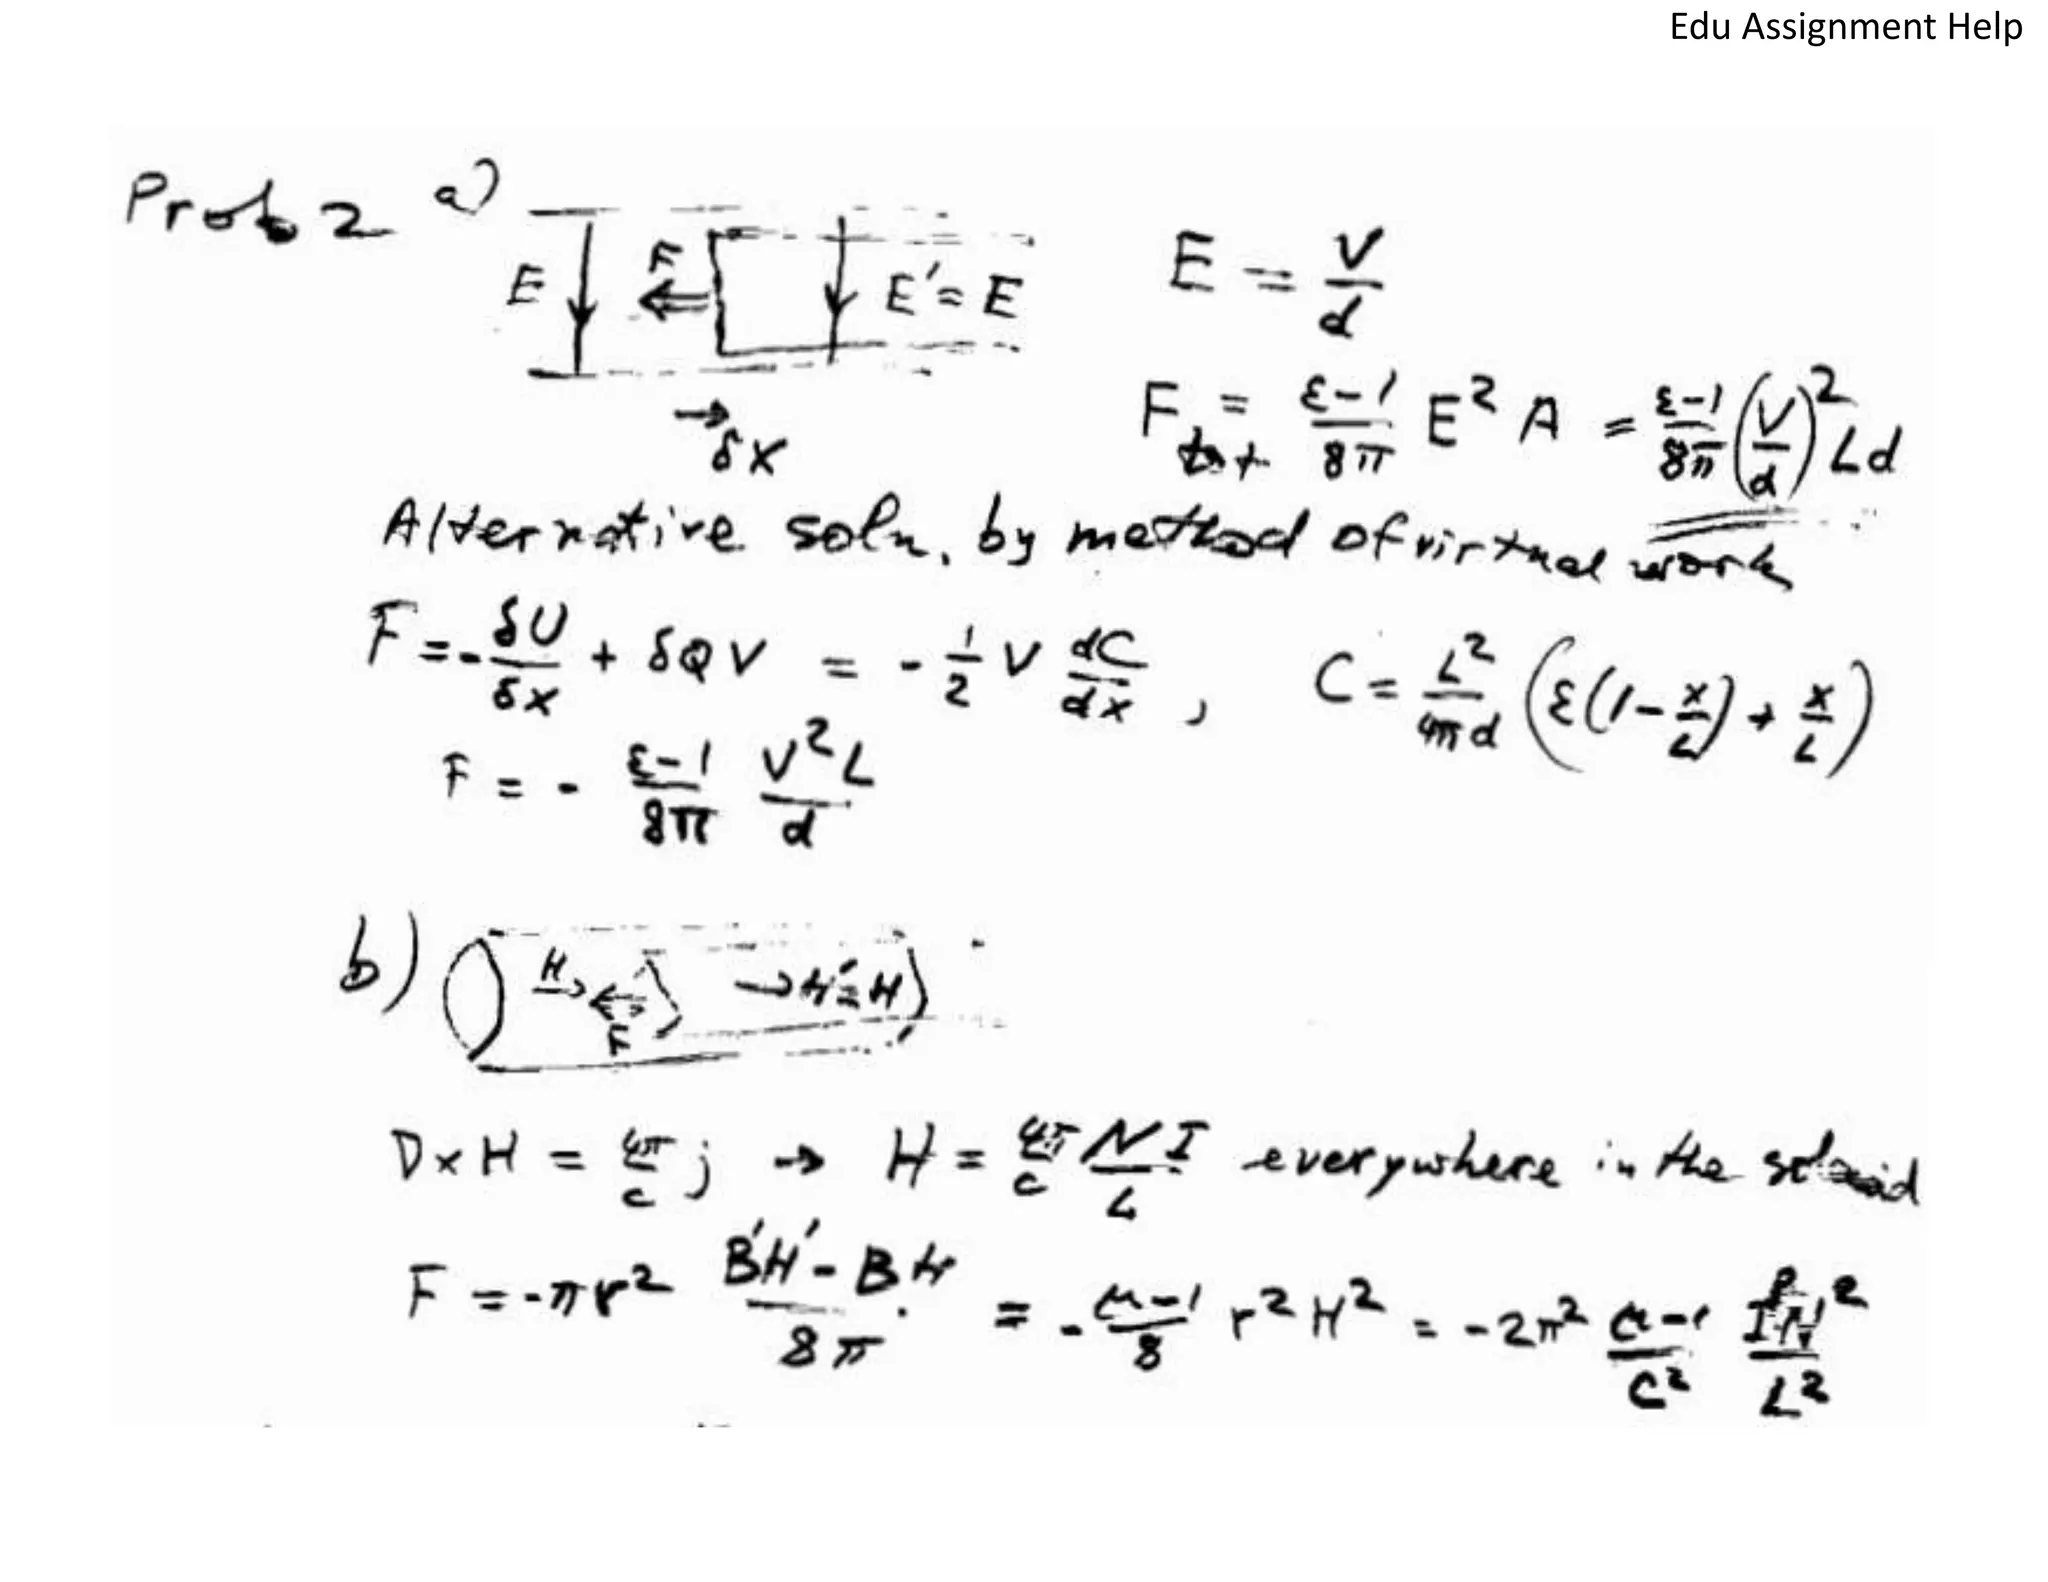 Edu Assignment Help
Prob 2 a)
E F E' = E
δx
E = V/d
F_tot = (ε-1)/8π E² A = (ε-1)/8π (V/d)² Ld
Alternative soln. by method of virtual work
F = - δU/δx + δQ V = - 1/2 V dC/dx , C = L²/4πd (ε(1 - x/L) + x/L)
F = - (ε-1)/8π V²L/d
b) H F → H' = H
D × H = 4π/c j → H = 4π/c NI/L everywhere in the
F = -πr² (B'H' - BH)/8π = - (μ-1)/8 r² H² = -2π² (μ-1)/c²